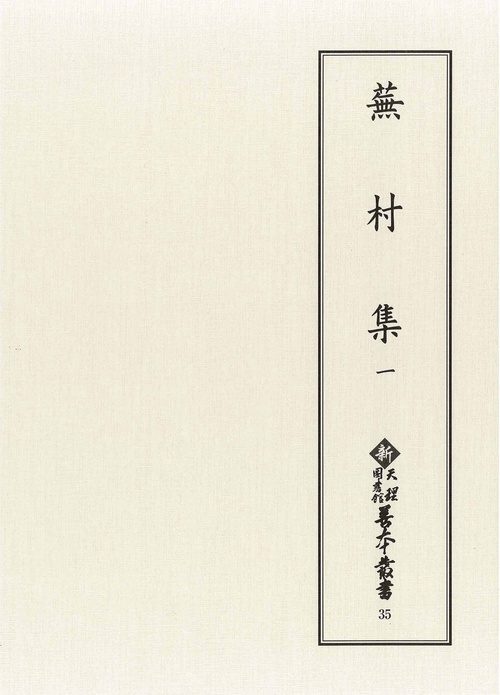 蕪村集 一
新
天理
図書館
善本叢書
35